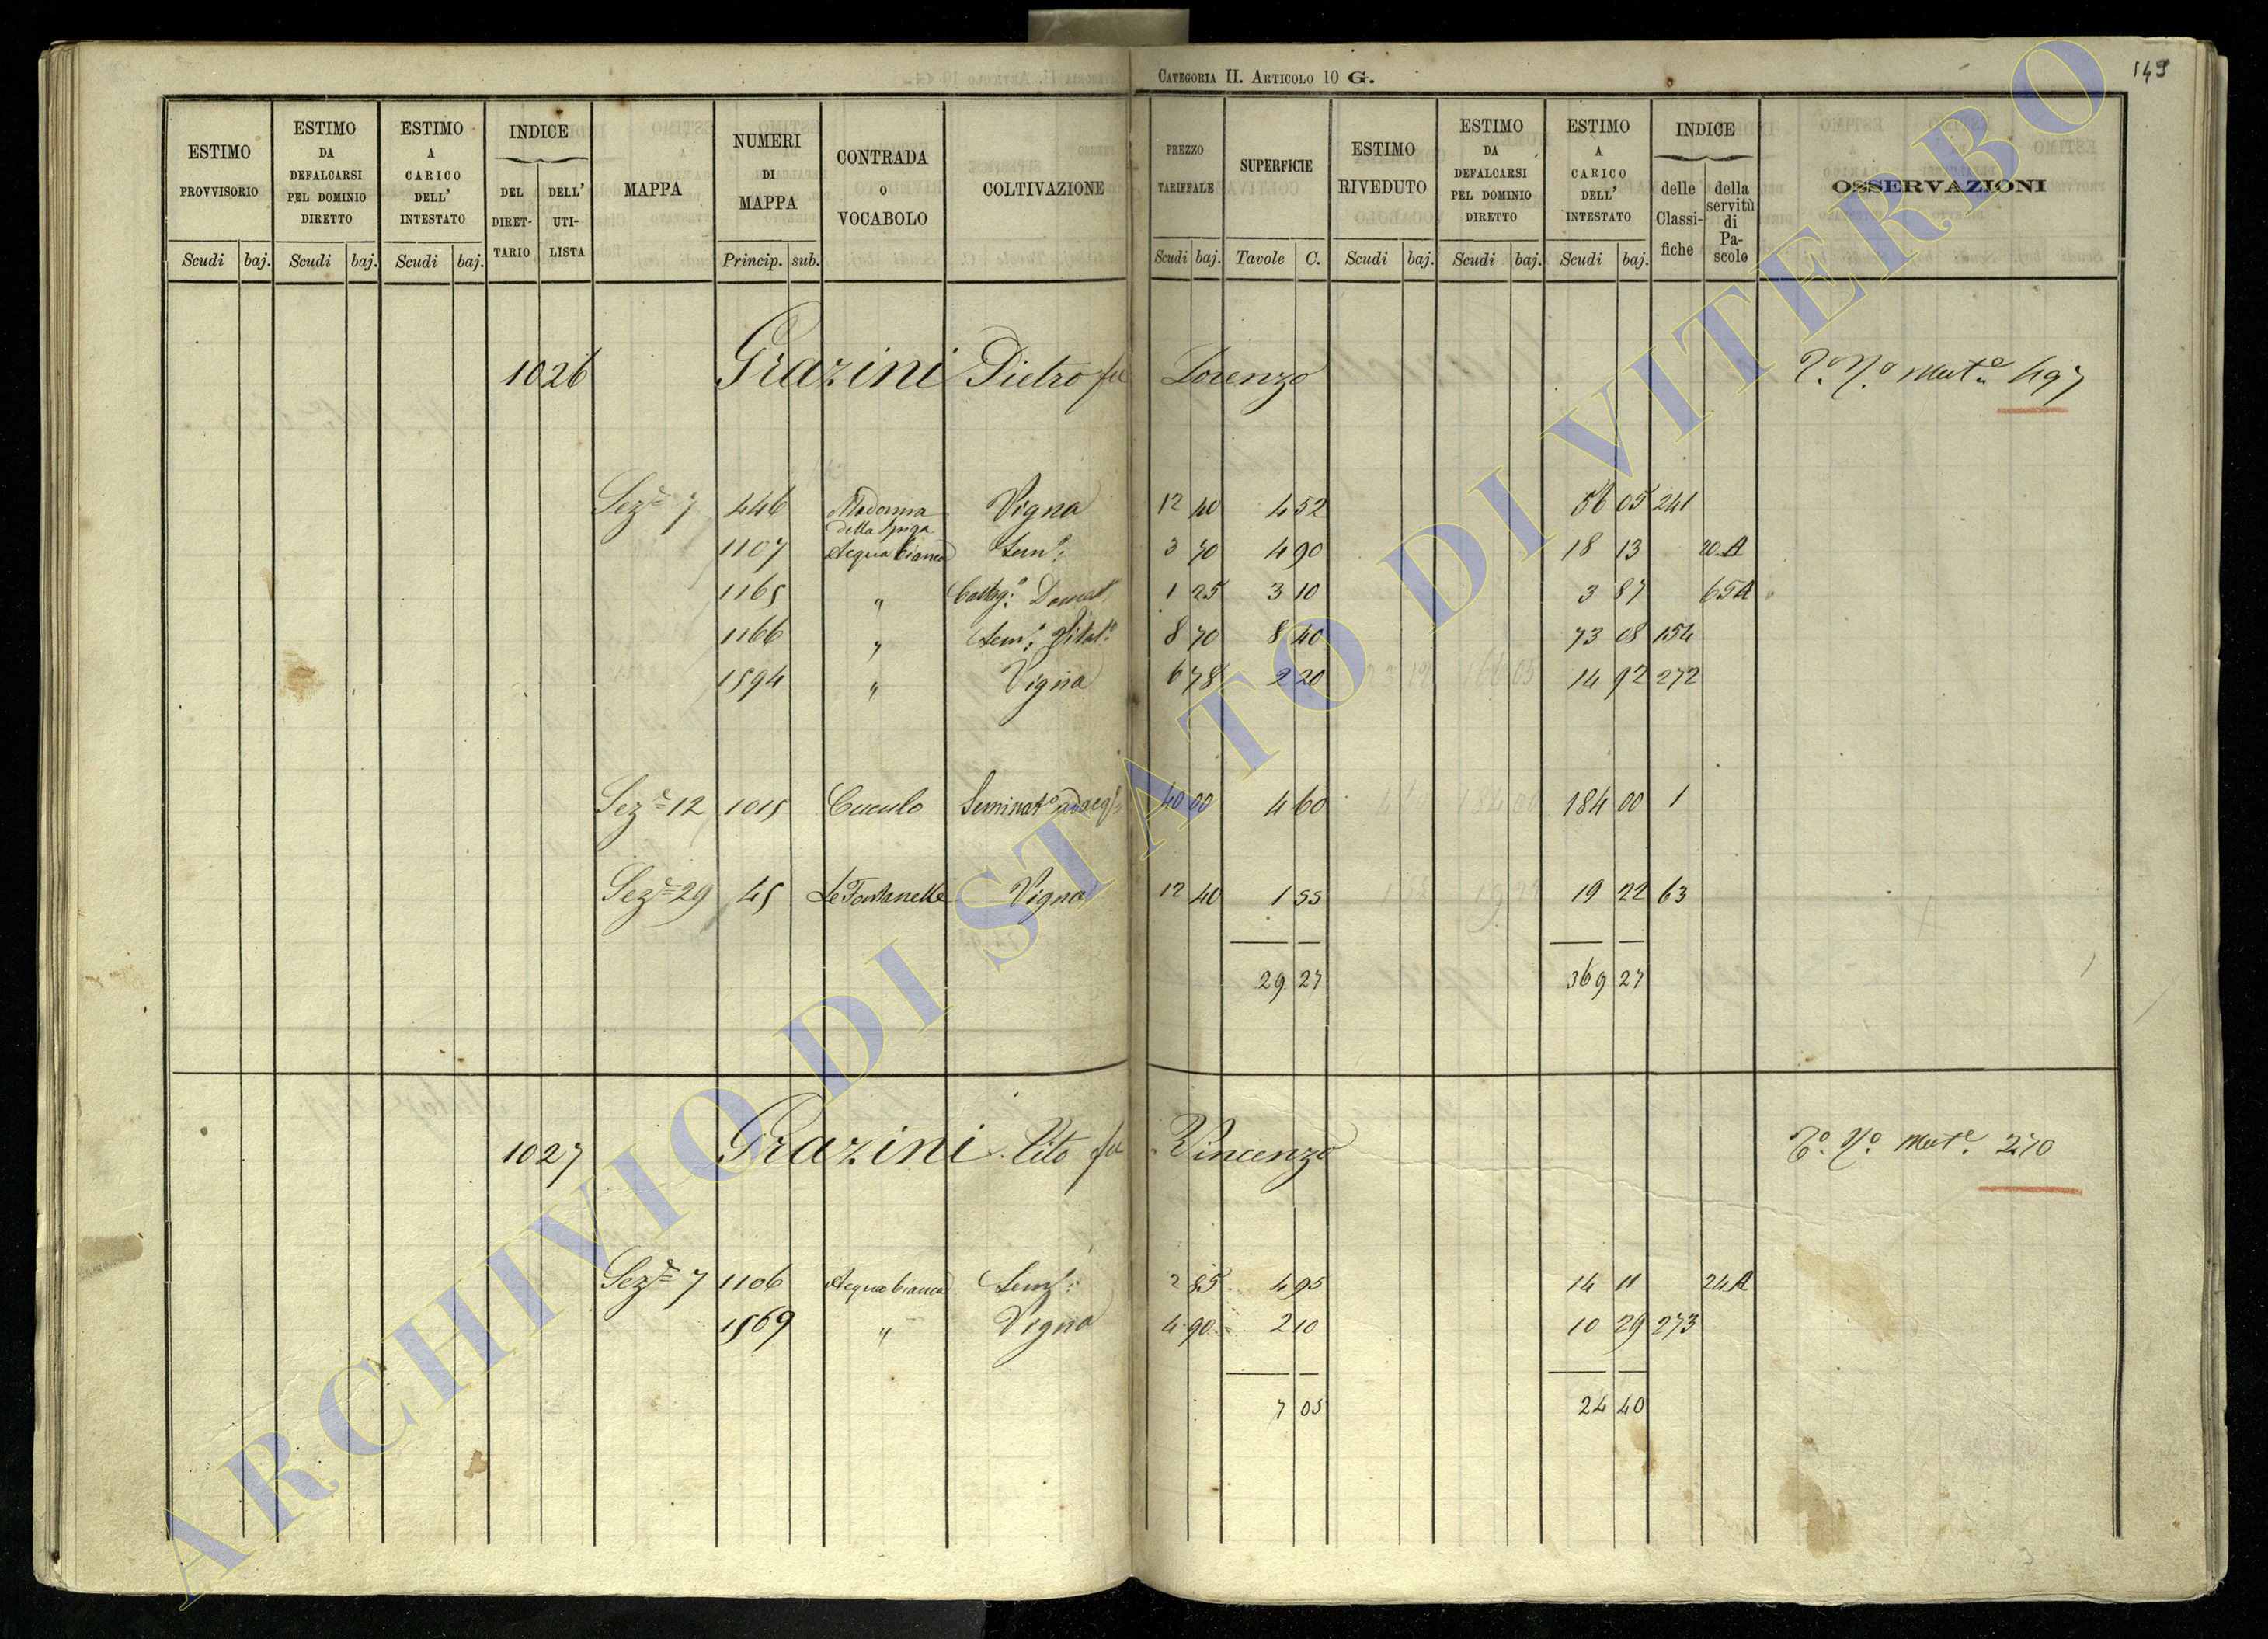 CATEGORIA II. ARTICOLO 10 G.
149
ESTIMO PROVVISORIO Scudi baj.
ESTIMO DA DEFALCARSI PEL DOMINIO DIRETTO Scudi baj.
ESTIMO A CARICO DELL' INTESTATO Scudi baj.
INDICE DEL DIRET-TARIO DELL' UTI-LISTA
MAPPA
NUMERI DI MAPPA Princip. sub.
CONTRADA O VOCABOLO
COLTIVAZIONE
PREZZO TARIFFALE Scudi baj.
SUPERFICIE Tavole C.
ESTIMO RIVEDUTO Scudi baj.
ESTIMO DA DEFALCARSI PEL DOMINIO DIRETTO Scudi baj.
ESTIMO A CARICO DELL' INTESTATO Scudi baj.
INDICE delle Classi-fiche della servitù di Pa-scolo
OSSERVAZIONI
1026 Grazini Pietro fu Lorenzo Mut. 497
Sez.e 7 446 Madonna della Spiga Vigna 12 40 4 52 56 05 241
1107 Acqua bianca Sem.o 3 70 4 90 18 13 20 A
1165 " Castag.o 1 25 3 10 3 87 65 A
1166 " Sem.o Vitat.o 8 70 8 40 73 08 154
1594 " Vigna 6 78 2 20 14 92 272
Sez.e 12 1015 Cuculo Seminat.o adacq.o 40 00 4 60 184 00 1
Sez.e 29 45 Le Fontanelle Vigna 12 40 1 55 19 22 63
29 27 369 27
1027 Grazini Vito fu Vincenzo Mut.e 270
Sez.e 7 1106 Acqua bianca Sem.o 2 85 4 95 14 11 24 A
1569 " Vigna 4 90 2 10 10 29 273
7 05 24 40
ARCHIVIO DI STATO DI VITERBO